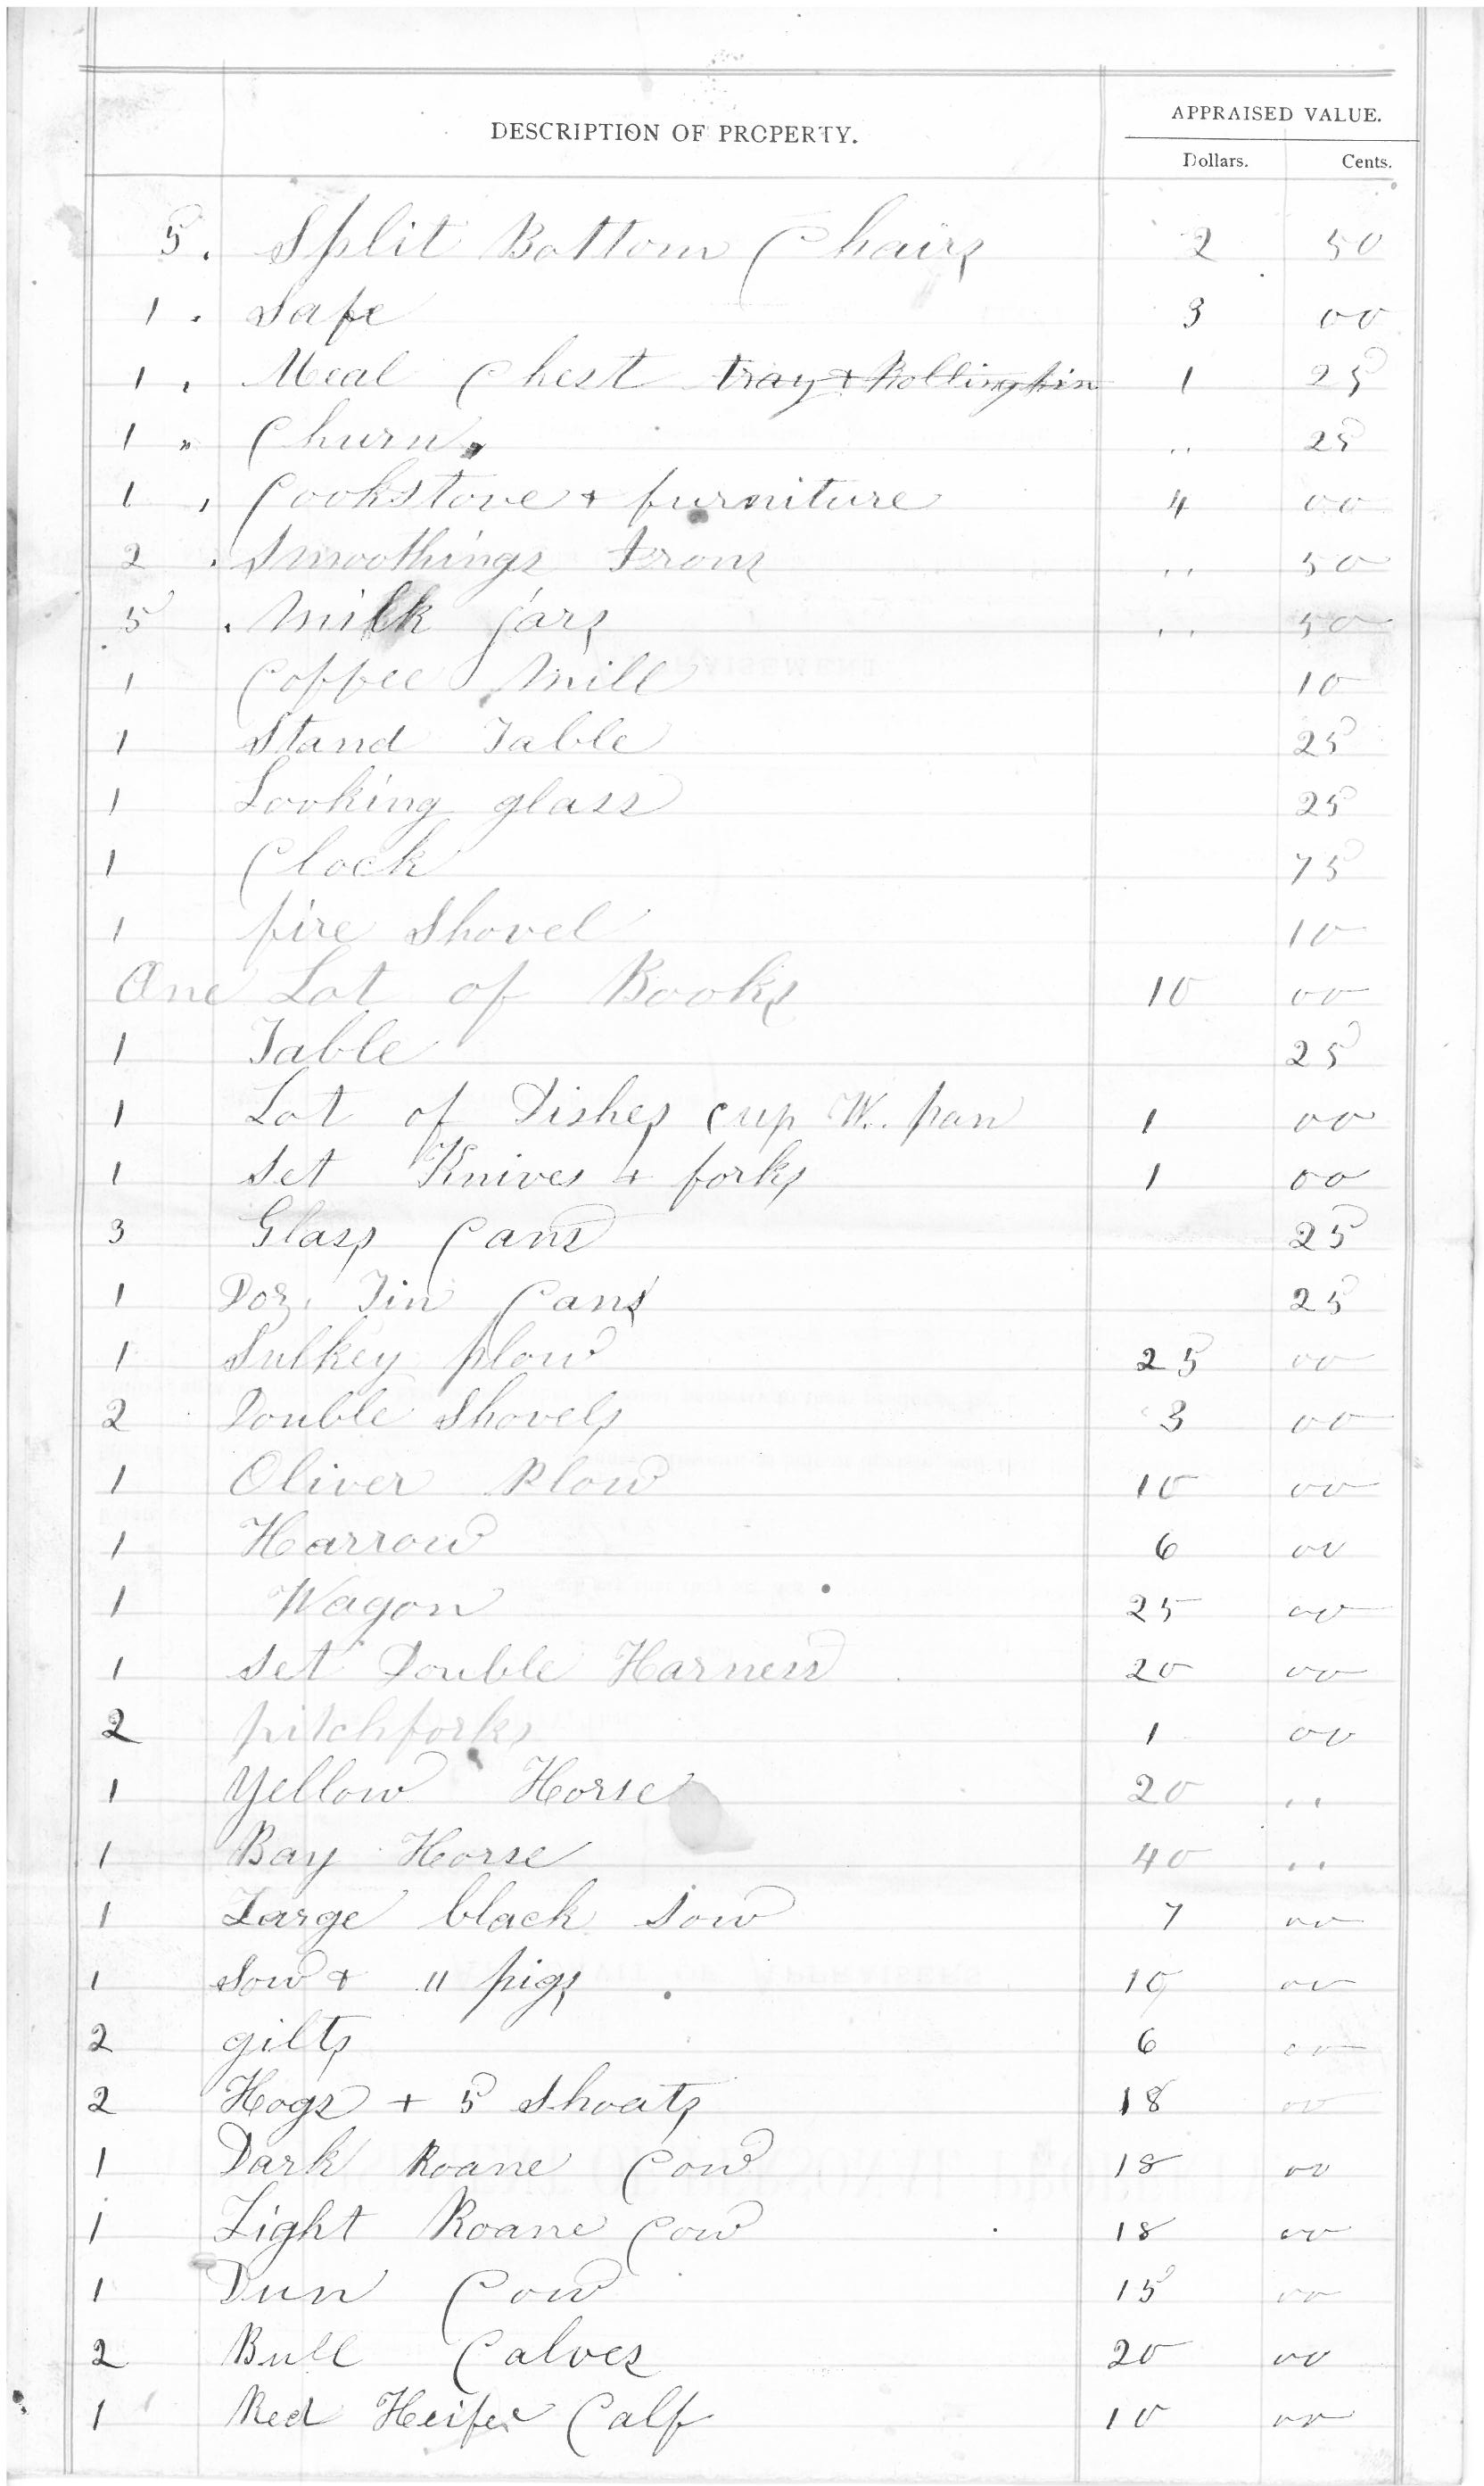 DESCRIPTION OF PROPERTY. APPRAISED VALUE.
Dollars. Cents.
5 . Split Bottom Chairs 2 50
1 . Safe 3 00
1 . Meal Chest tray + Rolling pin 1 25
1 " Churn, " 25
1 , Cookstove + furniture 4 00
2 . Smoothings Irons " 50
5 . Milk jars " 50
1 Coffee Mill 10
1 Stand Table 25
1 Looking glass 25
1 Clock 75
1 fire Shovel 10
One Lot of Books 10 00
1 Table 25
1 Lot of Dishes cup W. pan 1 00
1 Set Knives + forks 1 00
3 Glass Cans 25
1 Doz. Tin Cans 25
1 Sulkey plow 25 00
2 Double Shovels 3 00
1 Oliver Plow 10 00
1 Harrow 6 00
1 Wagon 25 00
1 Set Double Harness 20 00
2 pitchforks 1 00
1 Yellow Horse 20 "
1 Bay Horse 40 "
1 Large black Sow 7 00
1 Sow + 11 pigs 10 00
2 gilts 6 00
2 Hogs + 5 Shoats 18 00
1 Dark Roane Cow 18 00
1 Light Roane Cow 18 00
1 Dun Cow 15 00
2 Bull Calves 20 00
1 Red Heifer Calf 10 00